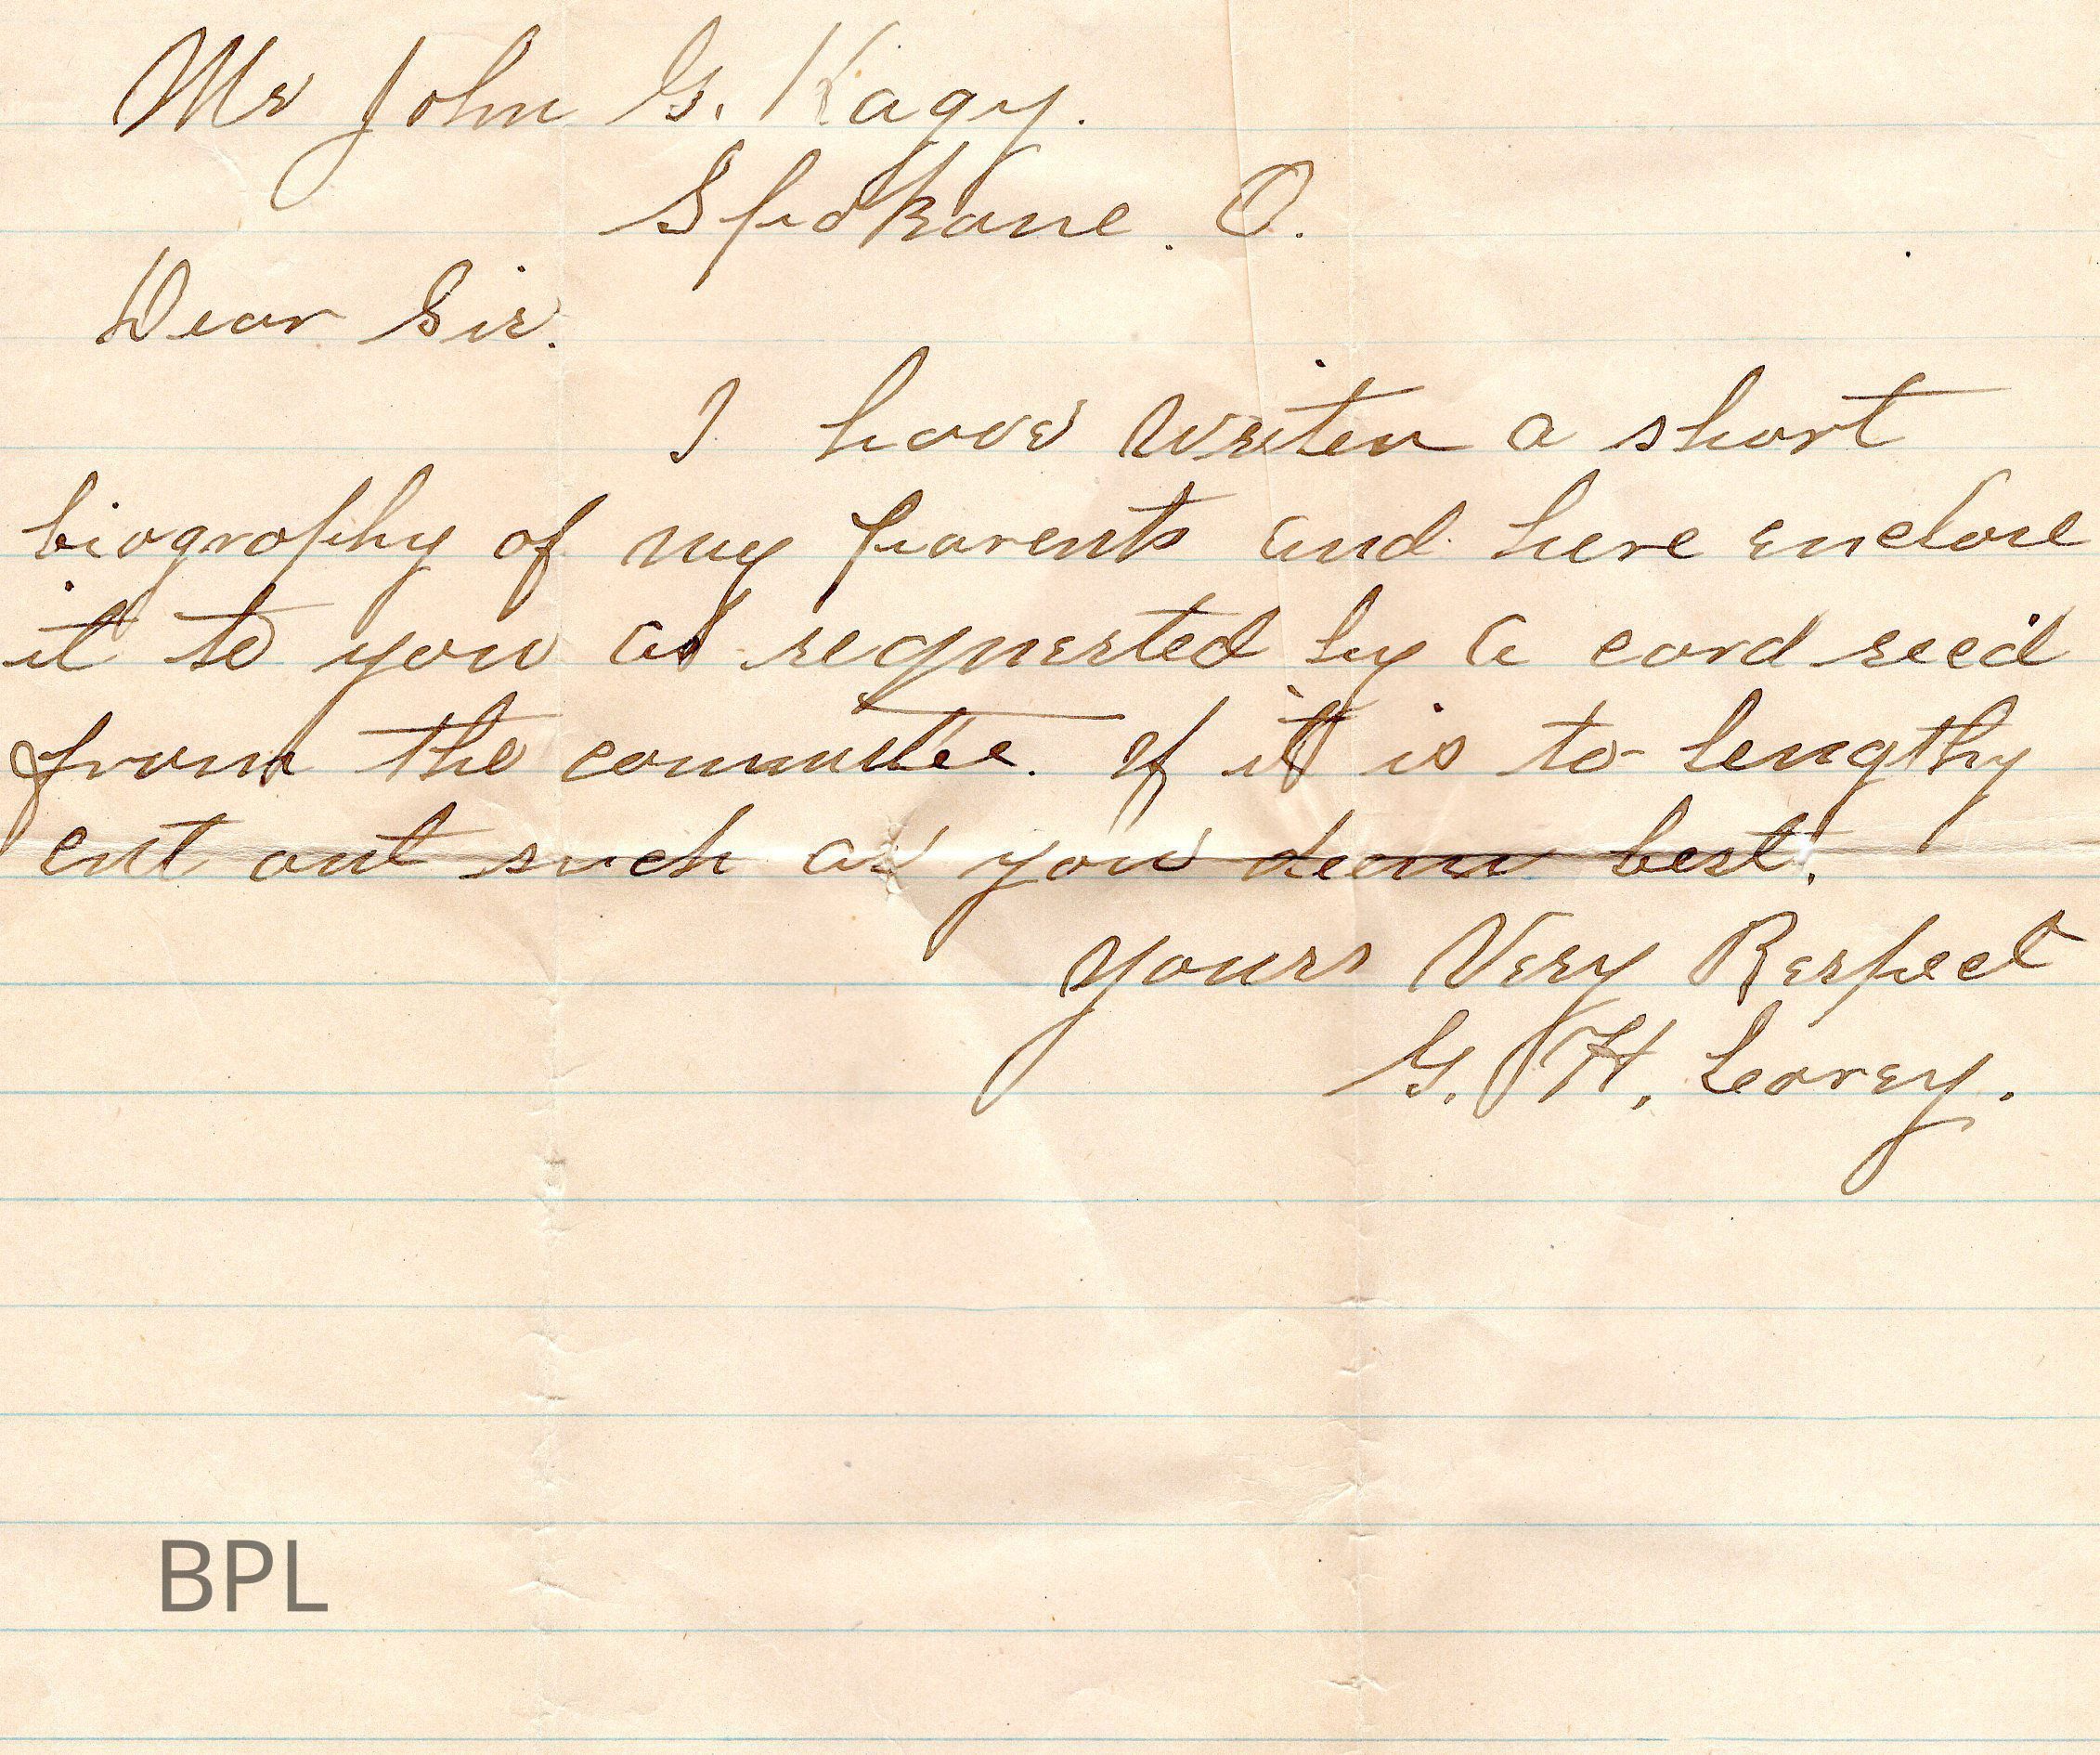 Mr John G. Kagy.
Spokane. O.
Dear Sir.
I have writen a short
biography of my parents and here enclose
it to you as requested by a card rec'd
from the committee. If it is to lengthy
cut out such as you deem best.
Yours Very Respect
G. H. Leavey.
BPL